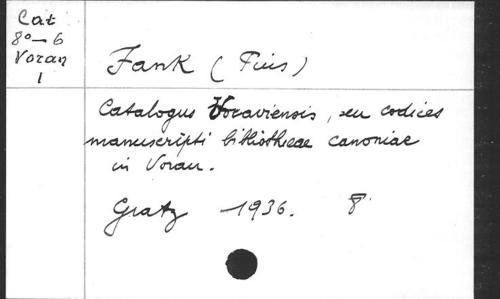 Cat
8°-6
Voran
1
Fank (Pius)
Catalogus Voraviensis, seu codices
manuscripti bibliothecae canoniae
in Vorau.
Gratz 1936. 8°